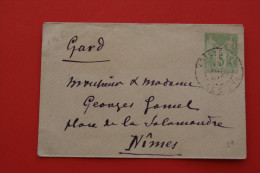 Gard
Monsieur & Madame
Georges Gamel
place de la Salamandre
Nîmes
5